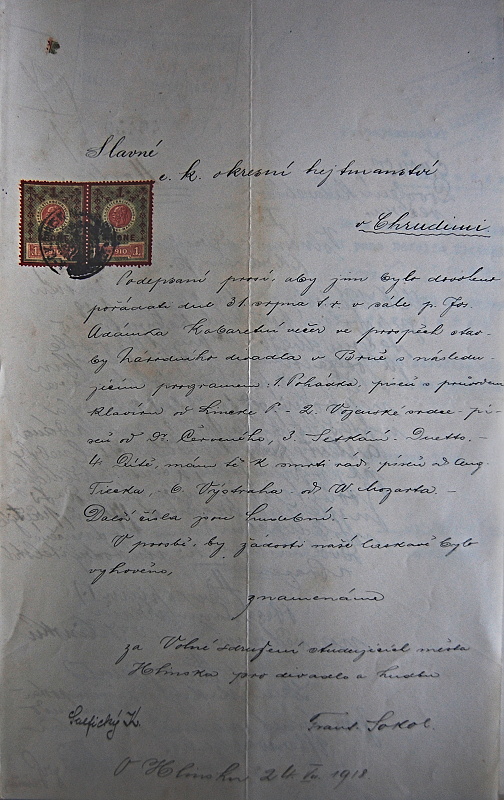 Slavné
c. k. okresní hejtmanství
v Chrudimi
Podepsaní prosí, aby jim bylo dovoleno
pořádati dne 31. srpna t. r. v sále p. Jos.
Adámka Kabaretní večer ve prospěch stav-
by Národního divadla v Brně s následu-
jícím programem: 1. Pohádka, píseň s průvodem
klavíru od Lincke P. - 2. Vojenské srdce - pí-
seň od Dr. Červeného, 3. Setkání - Duetto. -
4. Dítě, mám tě k smrti rád, píseň od Aug.
6. Výstraha - od W. Mozarta. -
Další čísla jsou hudební. -
V prosbě, by žádosti naší laskavě bylo
vyhověno,
znamenáme
za Volné sdružení studujících města
Hlinska pro divadlo a hudbu
Frant. Sokol.
V Hlinsku 24. 1918.